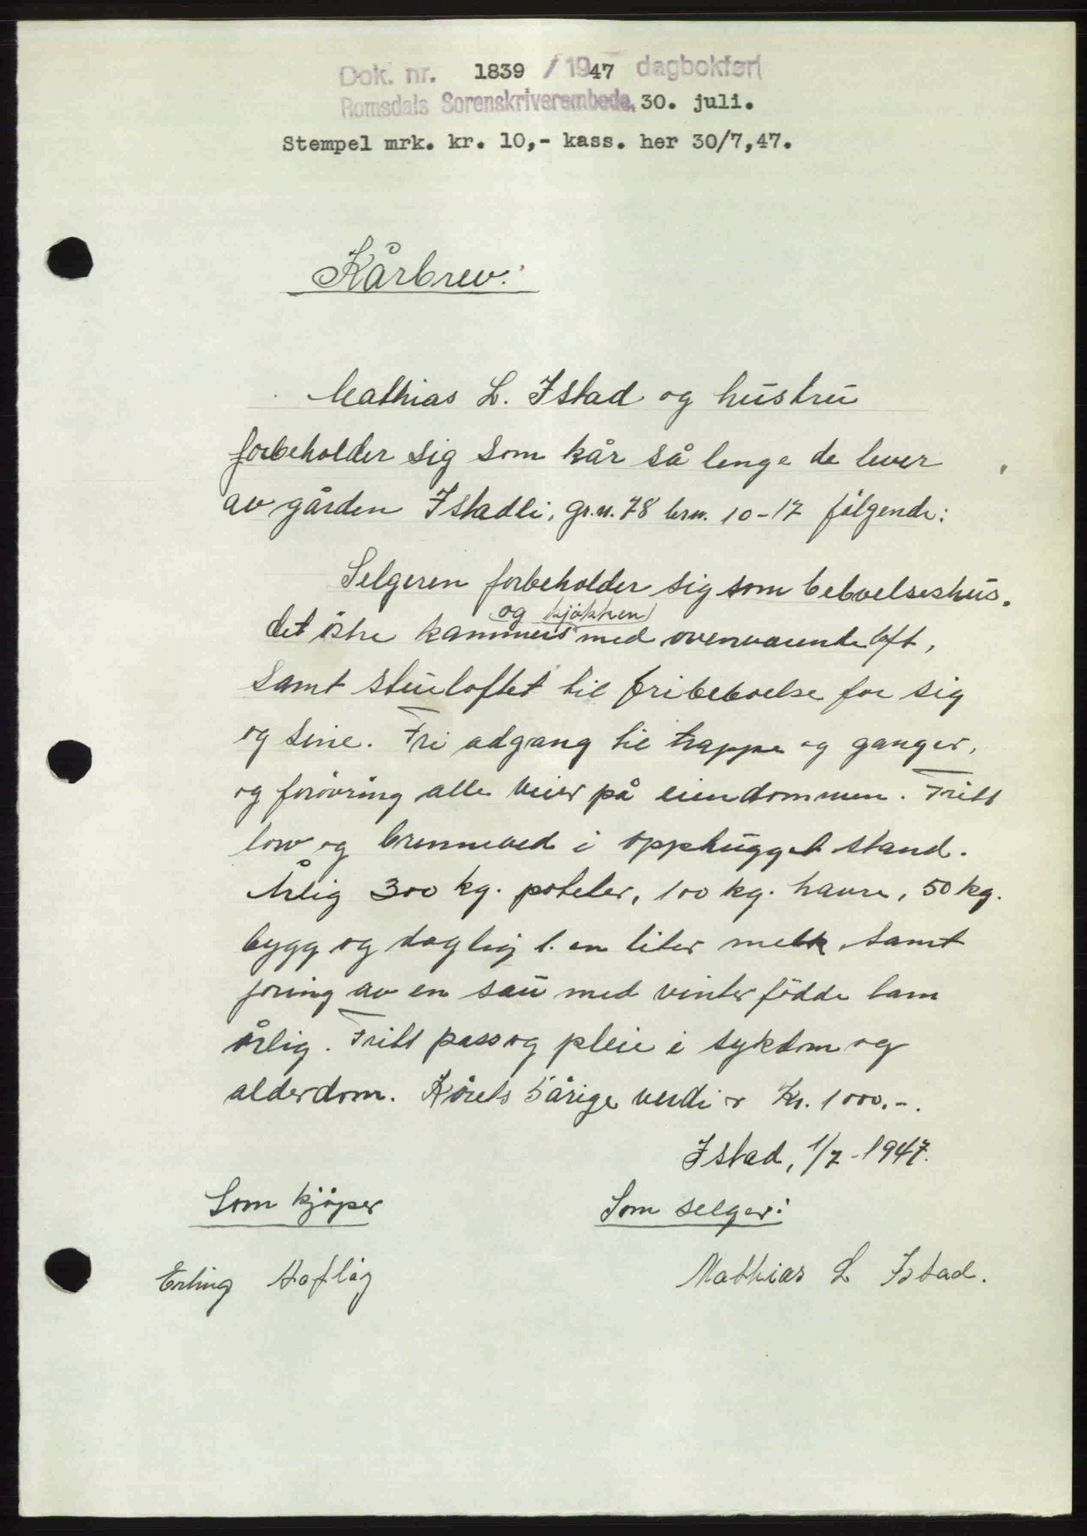 Dok. nr. 1839 / 1947 dagbokført
Romsdals Sorenskriverembede, 30. juli.
Stempel mrk. kr. 10,- kass. her 30/7,47.
Kårbrev:
Mathias L. Istad og hustru
forbeholder sig som kår så lenge de lever
av gården Istadli, gr.n. 78 brn. 10-17 følgende:
Selgeren forbeholder sig som bebvelseshus.
og kjøkken
det østre kammers med ovenvarende loft,
samt stueloftet til fribeboelse for sig
og sine. Fri adgang til trappe og ganger,
og forøvring alle veier på eiendommen. Fritt
lov og brenneved i opphugget stand.
Årlig 300 kg. poteter, 100 kg. havre, 50 kg.
bygg og daglig 1. en liter melk, samt
foring av en sau med vinterfødde lam
årlig. Fritt pass og pleie i sykdom og
alderdom. Kårets 5årige verdi er kr. 1000.-.
Istad, 1/7-1947.
Som kjøper
Som selger:
Erling Haflig
Mathias L Istad.